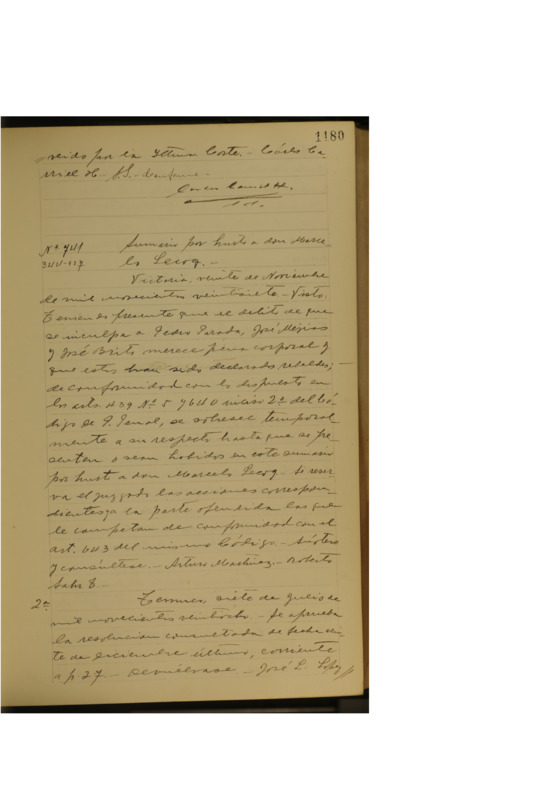 1180
nido por la Iltma Corte. - Carlos Ca-
Sumario por hurto a don Marce-
Nº 741
lo Lecoq. -
Victoria, veinte de Noviembre
de mil novecientos veintisiete - Visto:
Teniendo presente que el delito de que
se inculpa a Pedro Parada, José Mejias
y José Brito merece pena corporal y
que estos han sido declarados rebeldes; -
de conformidad con lo dispuesto en
los arts. 439 Nº 5 y 640 inciso 2º del Có-
digo de P. Penal, se sobresee temporal-
mente a su respecto hasta que se pre-
senten o sean habidos en este sumario
por hurto a don Marcelo Lecoq. - Se reser-
va el juzgado las acciones correspon-
dientes y a la parte ofendida las que
le competan de conformidad con el
art. 643 del mismo Código. - Anótese
y consúltese. - Arturo Martínez. - Roberto
2ª
Temuco, siete de Julio de
mil novecientos veintiocho. - Se aprueba
la resolución consultada de fecha vein-
te de Diciembre último, corriente
a f. 27. - Devuélvase. - José L. López